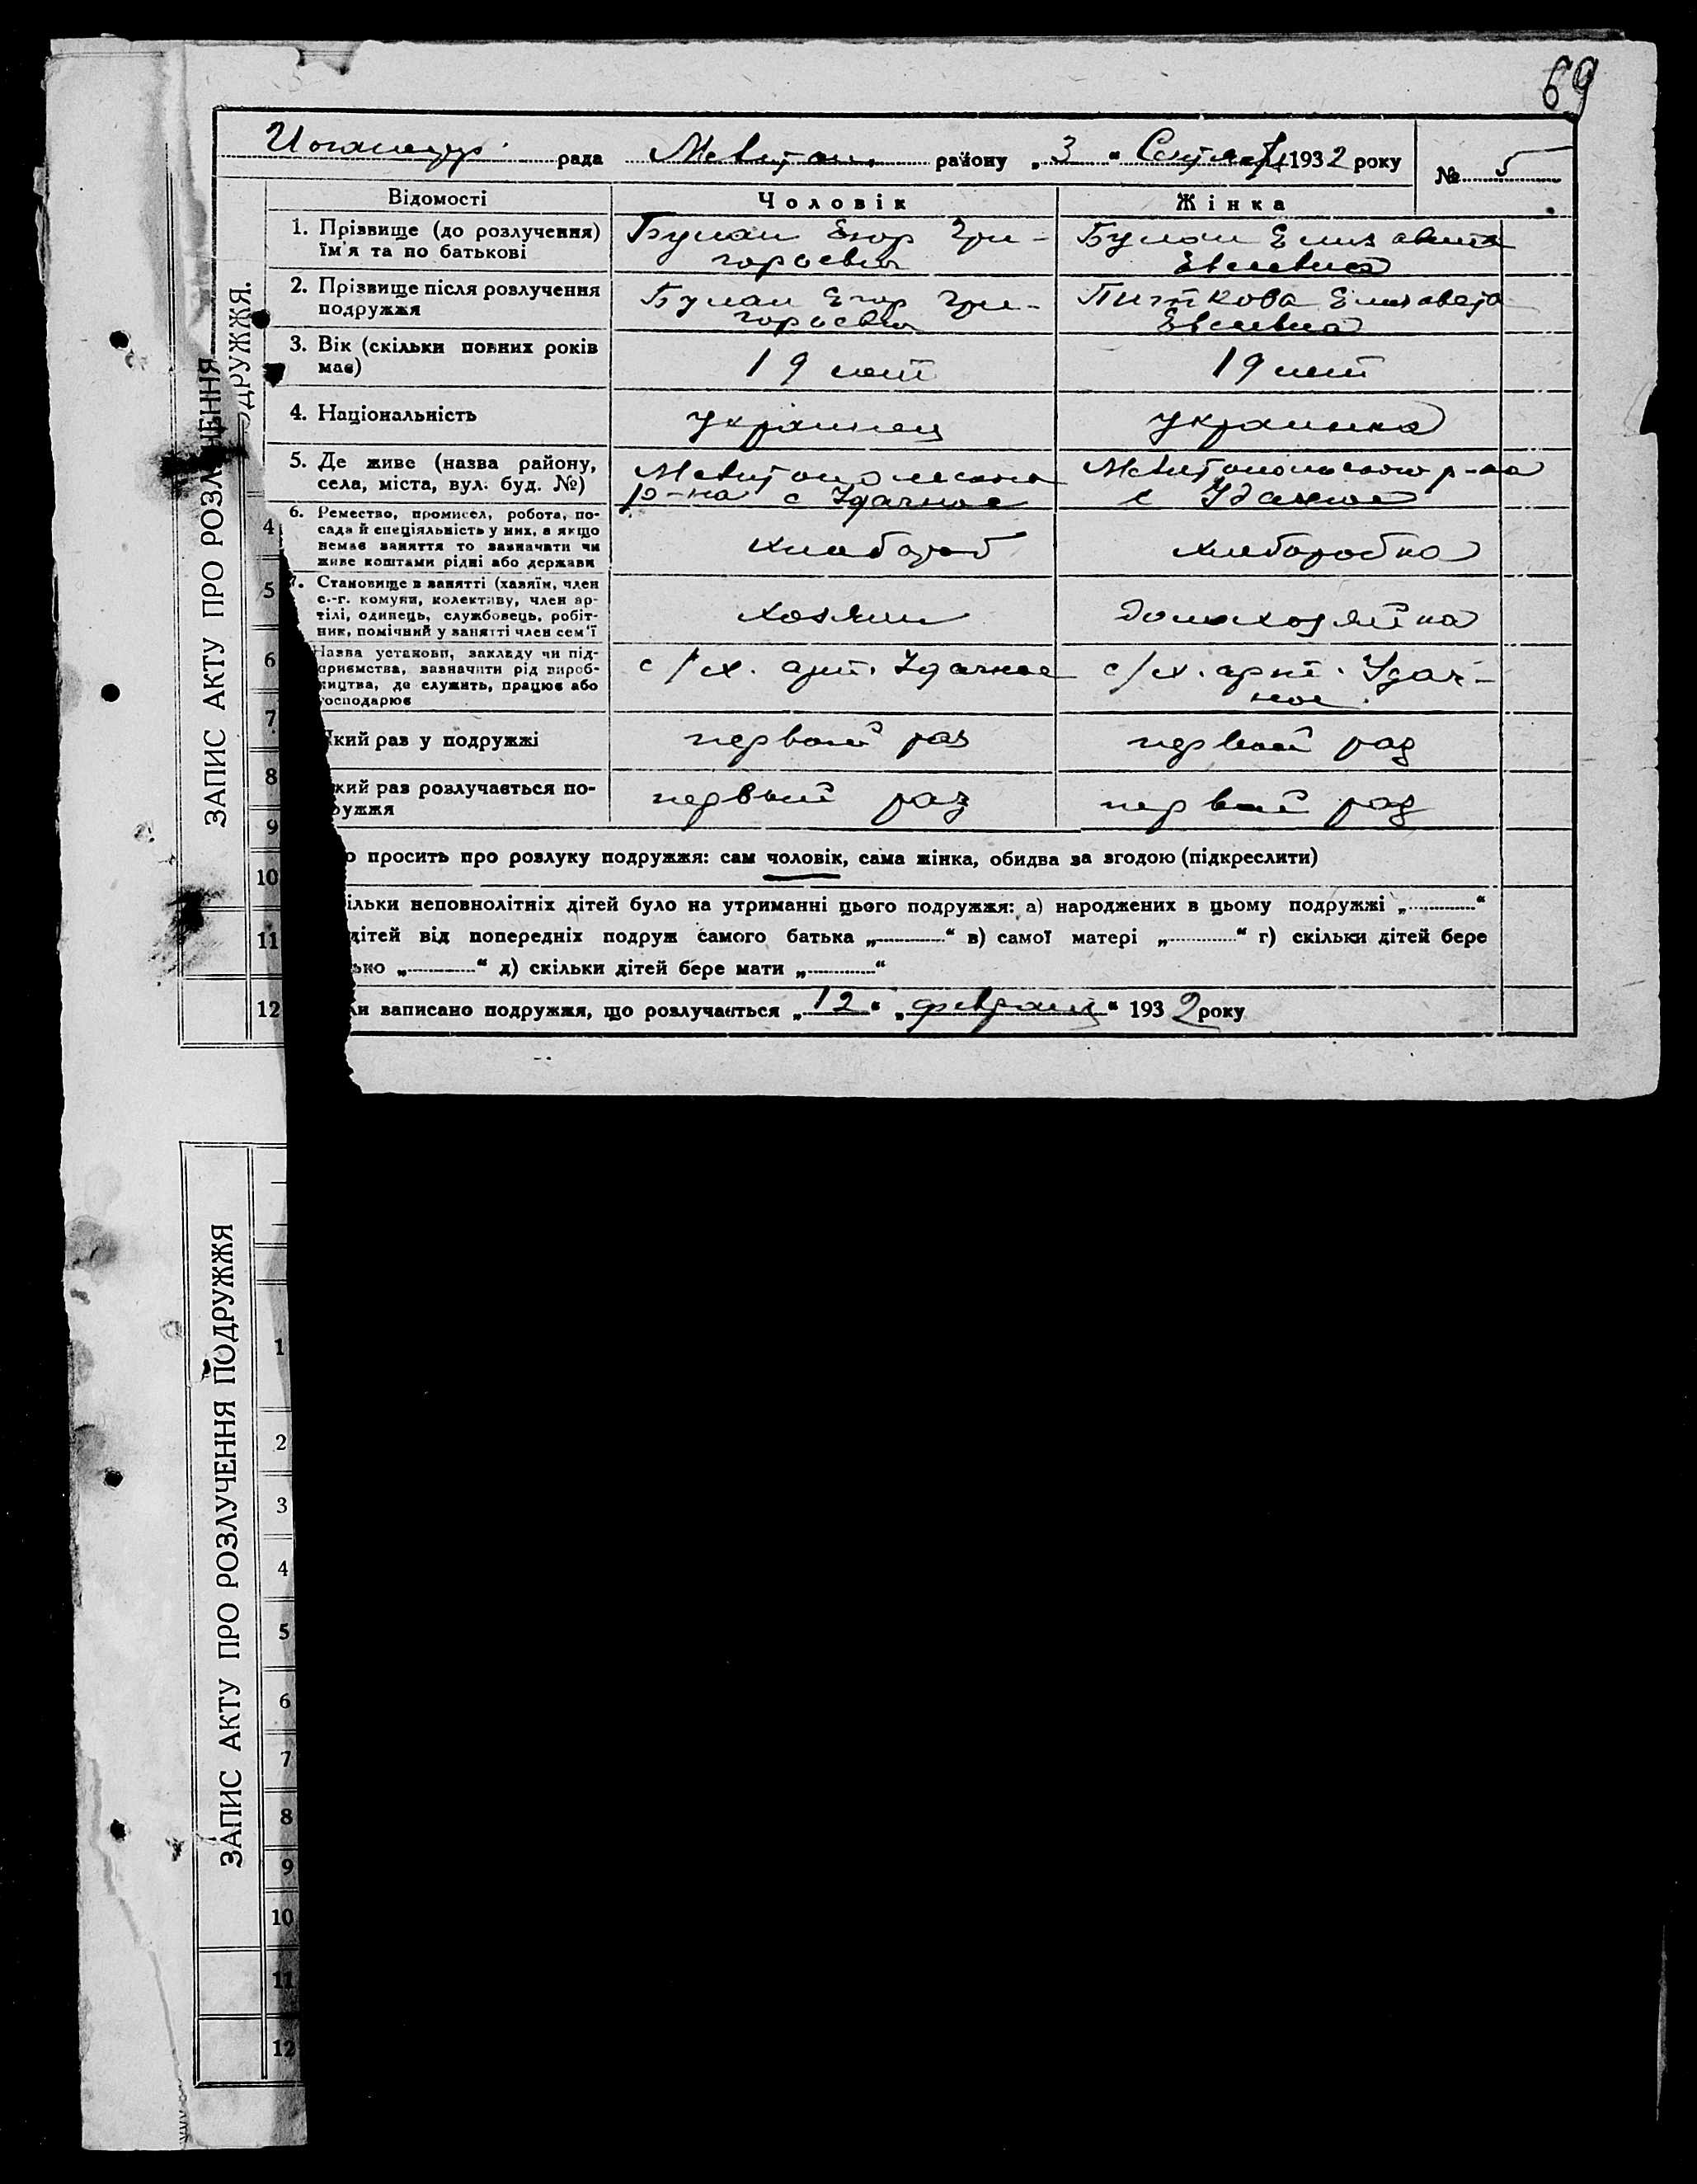 69
рада Мелитоп. району „3“ Сентяб. 1932 року
№ 5
Відомості Чоловік Жінка
1. Прізвище (до розлучення) їм'я та по батькові
Булан Егор Гри-
горьевич
Булан Елизавета
Евсеевна
2. Прізвище після розлучення подружжя
Булан Егор Гри-
горьевич
Пяткова Елизавета
Евсеевна
3. Вік (скільки повних років має)
19 лет
19 лет
4. Національність
украинец
украинка
5. Де живе (назва району, села, міста, вул. буд. №)
Мелитопольского
р-на с Удачное
Мелитопольского р-на
с Удачное
6. Ремество, промисел, робота, по-
сада й спеціяльність у них, а якщо
немає заняття то зазначити чи
живе коштами рідні або держави
хлебороб
хлеборобка
7. Становище в занятті (хазяїн, член
с.-г. комуни, колективу, член ар-
тілі, одинець, службовець, робіт-
ник, помічний у занятті член сем'ї
хозяин
домохозяйка
Назва установи, закладу чи під-
приємства, зазначити рід вироб-
ництва, де служить, працює або
господарює
с/х. арт. Удачное
с/х. арт. Удач-
ное.
Який раз у подружжі
первый раз
первый раз
кий раз розлучається по-
дружжя
первый раз
первый раз
о просить про розлуку подружжя: сам чоловік, сама жінка, обидва за згодою (підкреслити)
ільки неповнолітніх дітей було на утриманні цього подружжя: а) народжених в цьому подружжі „............“
дітей від попередніх подруж самого батька „............“ в) самої матері „............“ г) скільки дітей бере
ько „............“ д) скільки дітей бере мати „............“
ли записано подружжя, що розлучається „12“ „февраля“ 1932 року
ЗАПИС АКТУ ПРО РОЗЛУЧЕННЯ
ДРУЖЖЯ.
4
5
6
7
8
9
10
11
12
ЗАПИС АКТУ ПРО РОЗЛУЧЕННЯ ПОДРУЖЖЯ
1
2
3
4
5
6
7
8
9
10
11
12